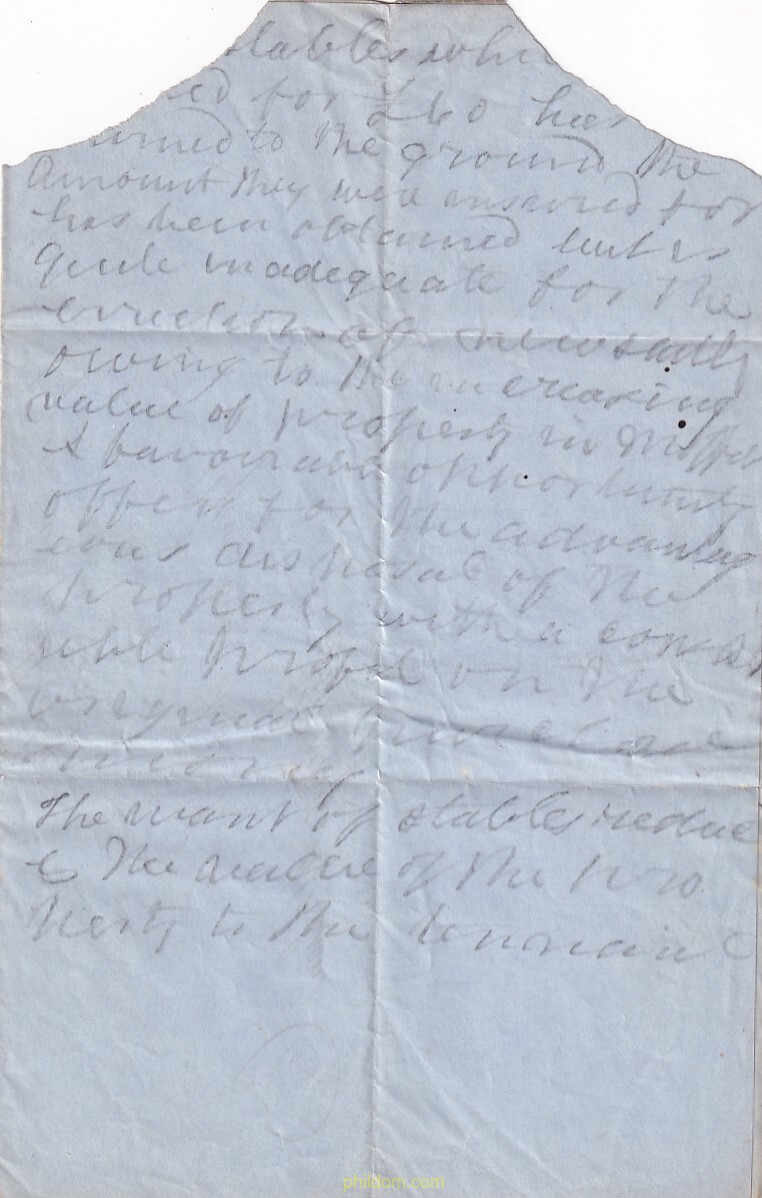 stables whi
ed for £60 has
urned to the ground the
Amount they were insured for
has been obtained but is
quite inadequate for the
erection of new
owing to the increasing
value of property in
A favourable opportunity
offers for the advantag
eous disposal of the
property with a consid
rable profit on the
original purchase
money
The want of stables reduc
es the value of the pro
perty to the tennant
phildom.com